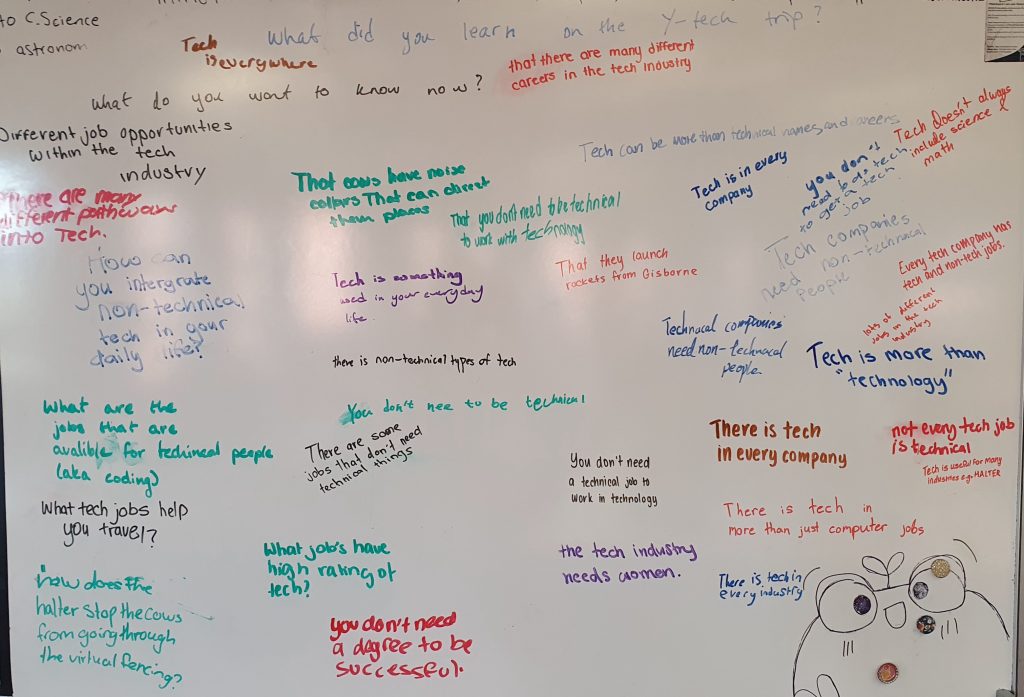 to C.Science
astronom
What did you learn on the Y-tech trip?
Tech
is everywhere
that there are many different
careers in the tech industry
What do you want to know now?
Different job opportunities
within the tech
industry
Tech can be more than technical names and careers
Tech doesn't always
include science &
math
There are many
different pathways
into Tech.
That cows have noise
collars That can direct
them places
That you dont need to be technical
to work with technology
Tech is in every
company
you don't
need to do tech
to get a tech
job
How can
you intergrate
non-technical
tech in your
daily life?
Tech is something
used in your everyday
life
That they launch
rockets from Gisborne
Tech companies
need non-technical
people
Every tech company has
tech and non-tech jobs.
lots of different
jobs in the tech
industry
there is non-technical types of tech
Technacal companies
need non-technacal
people
Tech is more than
"technology"
What are the
jobs that are
avalible for techincal people
(aka coding)
You don't nee to be technical
There are some
jobs that don't need
technical things
You don't need
a technical job to
work in technology
There is tech
in every company
not every tech job
is technical
Tech is useful for many
industries e.g. HALTER
What tech jobs help
you travel?
There is tech in
more than just computer jobs
What job's have
high raking of
tech?
the tech industry
needs women.
There is tech in
every industry
how does the
halter stop the cows
from going through
the virtual fencing?
you don't need
a degree to be
successful.